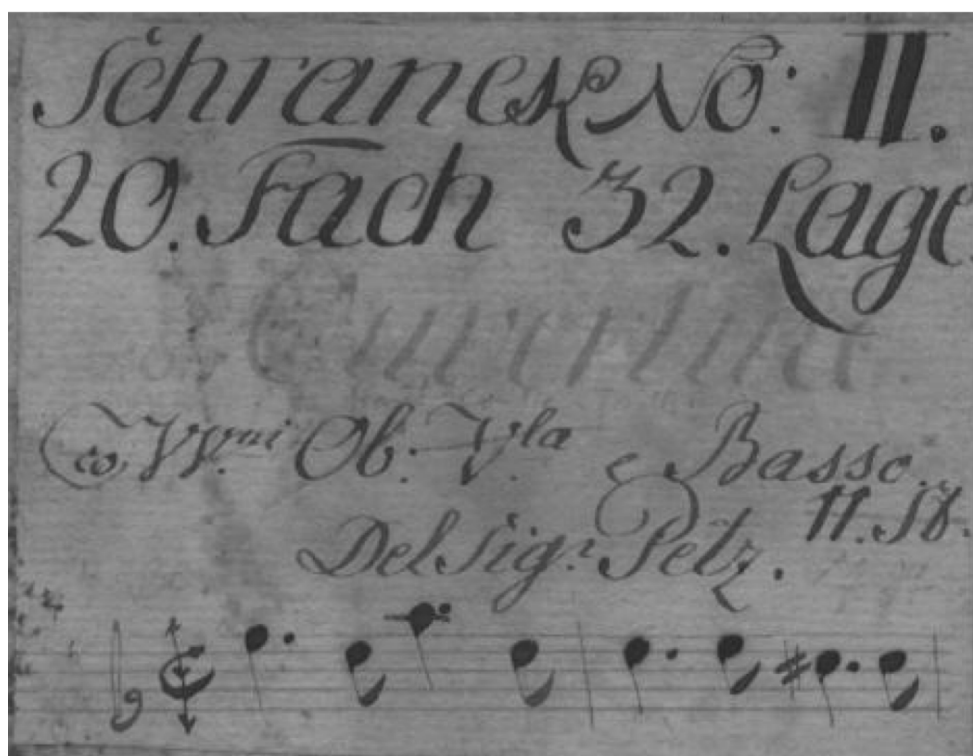 Schranck No: II.
20. Fach 32. Lage.
Ouvertur
co VV.ni Ob. V.la e Basso.
11. St.
Del Sig.r Petz.